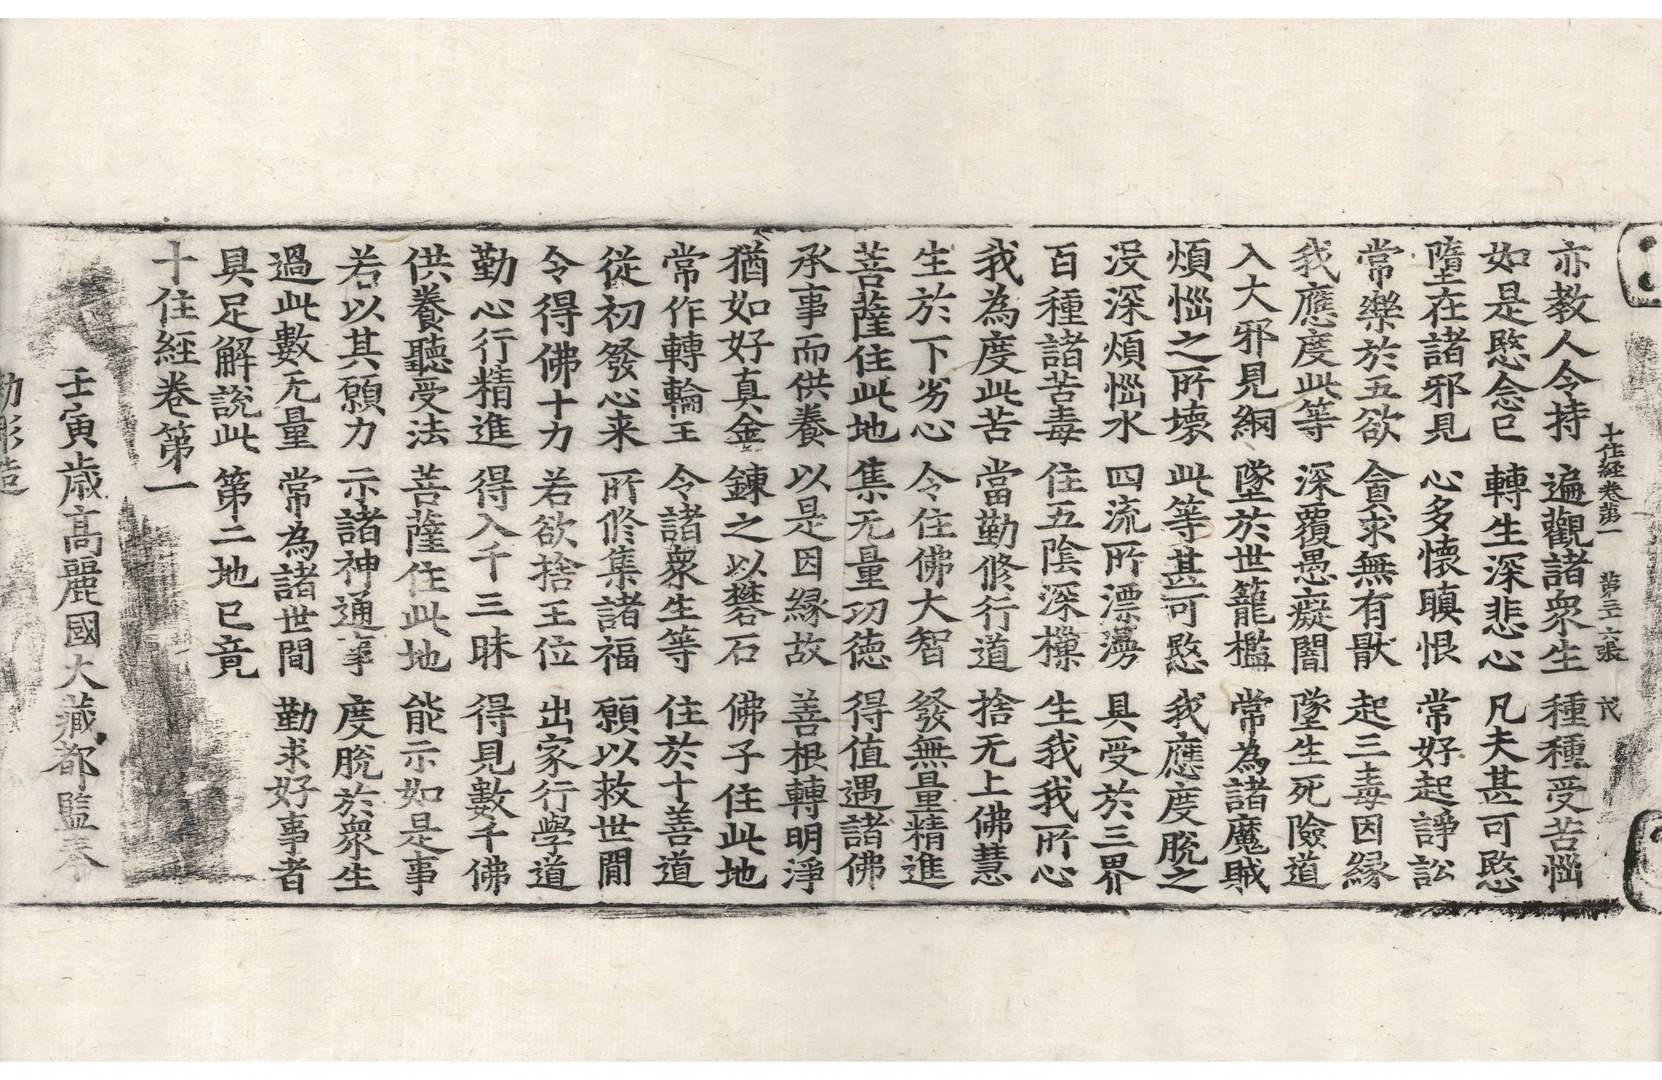 十住經卷第一 第三六張 茂
亦教人令持 遍觀諸衆生 種種受苦惱
如是愍念已 轉生深悲心 凡夫甚可愍
墮在諸邪見 心多懷瞋恨 常好起諍訟
常樂於五欲 貪求無有猒 起三毒因縁
我應度此等 深覆愚癡闇 墜生死險道
入大邪見網 墜於世籠檻 常為諸魔賊
煩惱之所壞 此等甚可愍 我應度脫之
没深煩惱水 四流所漂蕩 具受於三界
百種諸苦毒 住五陰深樔 生我我所心
我為度此苦 當勤修行道 捨无上佛慧
生於下劣心 令住佛大智 發無量精進
菩薩住此地 集无量功德 得值遇諸佛
承事而供養 以是因縁故 善根轉明淨
猶如好真金 鍊之以礬石 佛子住此地
常作轉輪王 令諸衆生等 住於十善道
從初發心来 所修集諸福 願以救世間
令得佛十力 若欲捨王位 出家行學道
勤心行精進 得入千三昧 得見數千佛
供養聽受法 菩薩住此地 能示如是事
若以其願力 示諸神通事 度脫於衆生
過此數无量 常為諸世間 勤求好事者
具足解說此 第二地已竟
十住經卷第一
壬寅歳高麗國大藏都監奉
勑彫造